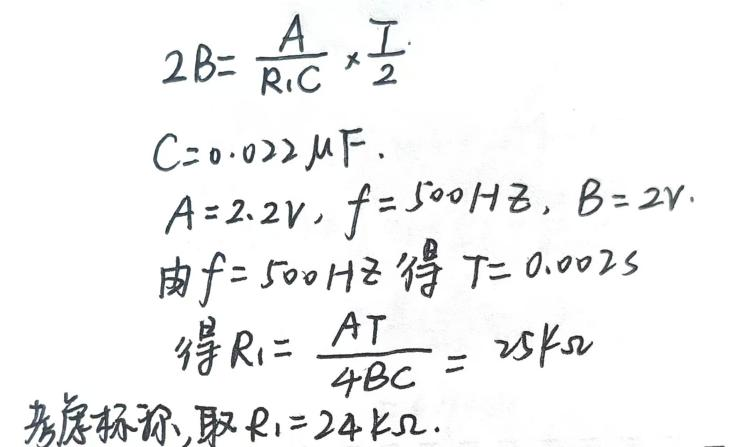 2B = A/(R₁C) × T/2
C=0.022μF.
A=2.2V, f=500HZ, B=2V.
由f=500HZ得 T=0.002s
得R₁= AT/(4BC) = 25kΩ
考虑标称,取R₁=24kΩ.